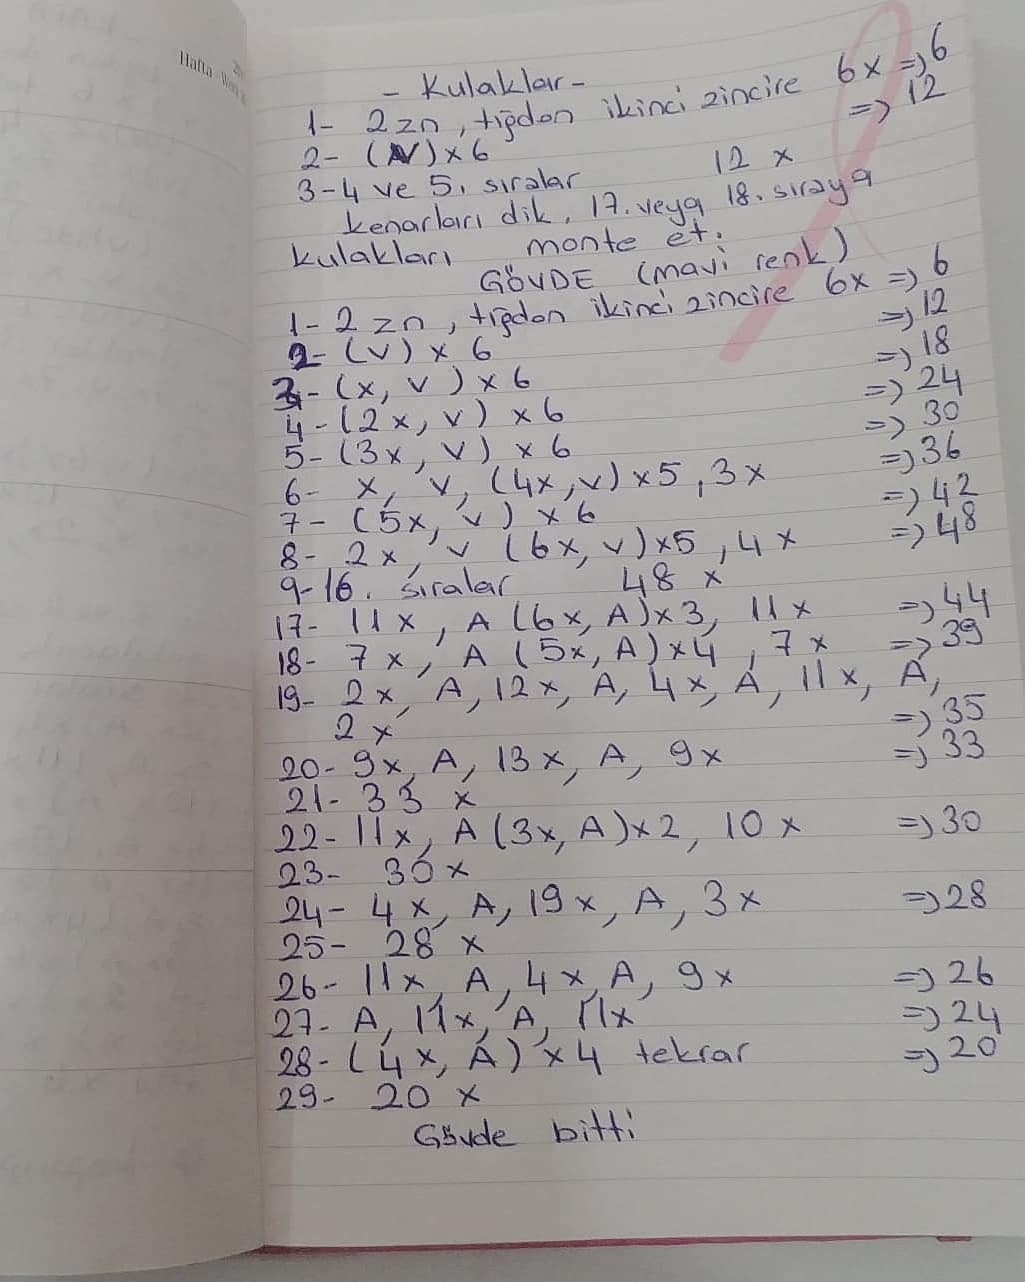 Hafta - W
- Kulaklar -
1- 2 zn, tığdan ikinci zincire 6x => 6
2- (V) x 6 => 12
3-4 ve 5. sıralar 12 x
kenarları dik, 17. veya 18. sıraya
kulakları monte et.
GÖVDE (mavi renk)
1- 2 zn, tığdan ikinci zincire 6x => 6
2- (v) x 6 => 12
3- (x, v) x 6 => 18
4- (2x, v) x 6 => 24
5- (3x, v) x 6 => 30
6- x, v, (4x, v) x 5, 3x => 36
7- (5x, v) x 6 => 42
8- 2x, v (6x, v) x5, 4x => 48
9-16. sıralar 48 x
17- 11x, A (6x, A)x3, 11x => 44
18- 7x, A (5x, A)x4, 7x => 39
19- 2x, A, 12x, A, 4x, A, 11x, A,
2x => 35
20- 9x, A, 13x, A, 9x => 33
21- 33 x
22- 11x, A (3x, A)x2, 10x => 30
23- 30x
24- 4x, A, 19x, A, 3x => 28
25- 28 x
26- 11x, A, 4x, A, 9x => 26
27- A, 11x, A, 11x => 24
28- (4x, A) x4 tekrar => 20
29- 20 x
Gövde bitti